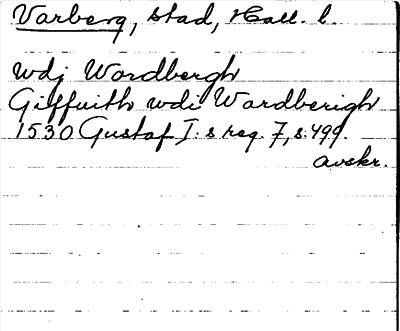 Varberg, stad, Hall. l.
wdj Wardbergh
Giffuith wdi Wardberigh
1530 Gustaf I:s reg. 7, s. 499.
avskr.